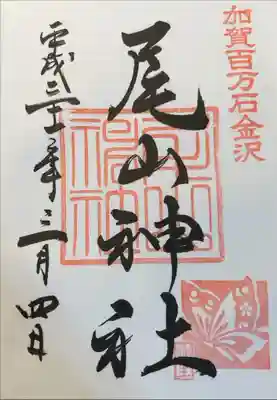 加賀百万石金沢
尾山神社
平成三十一年三月四日